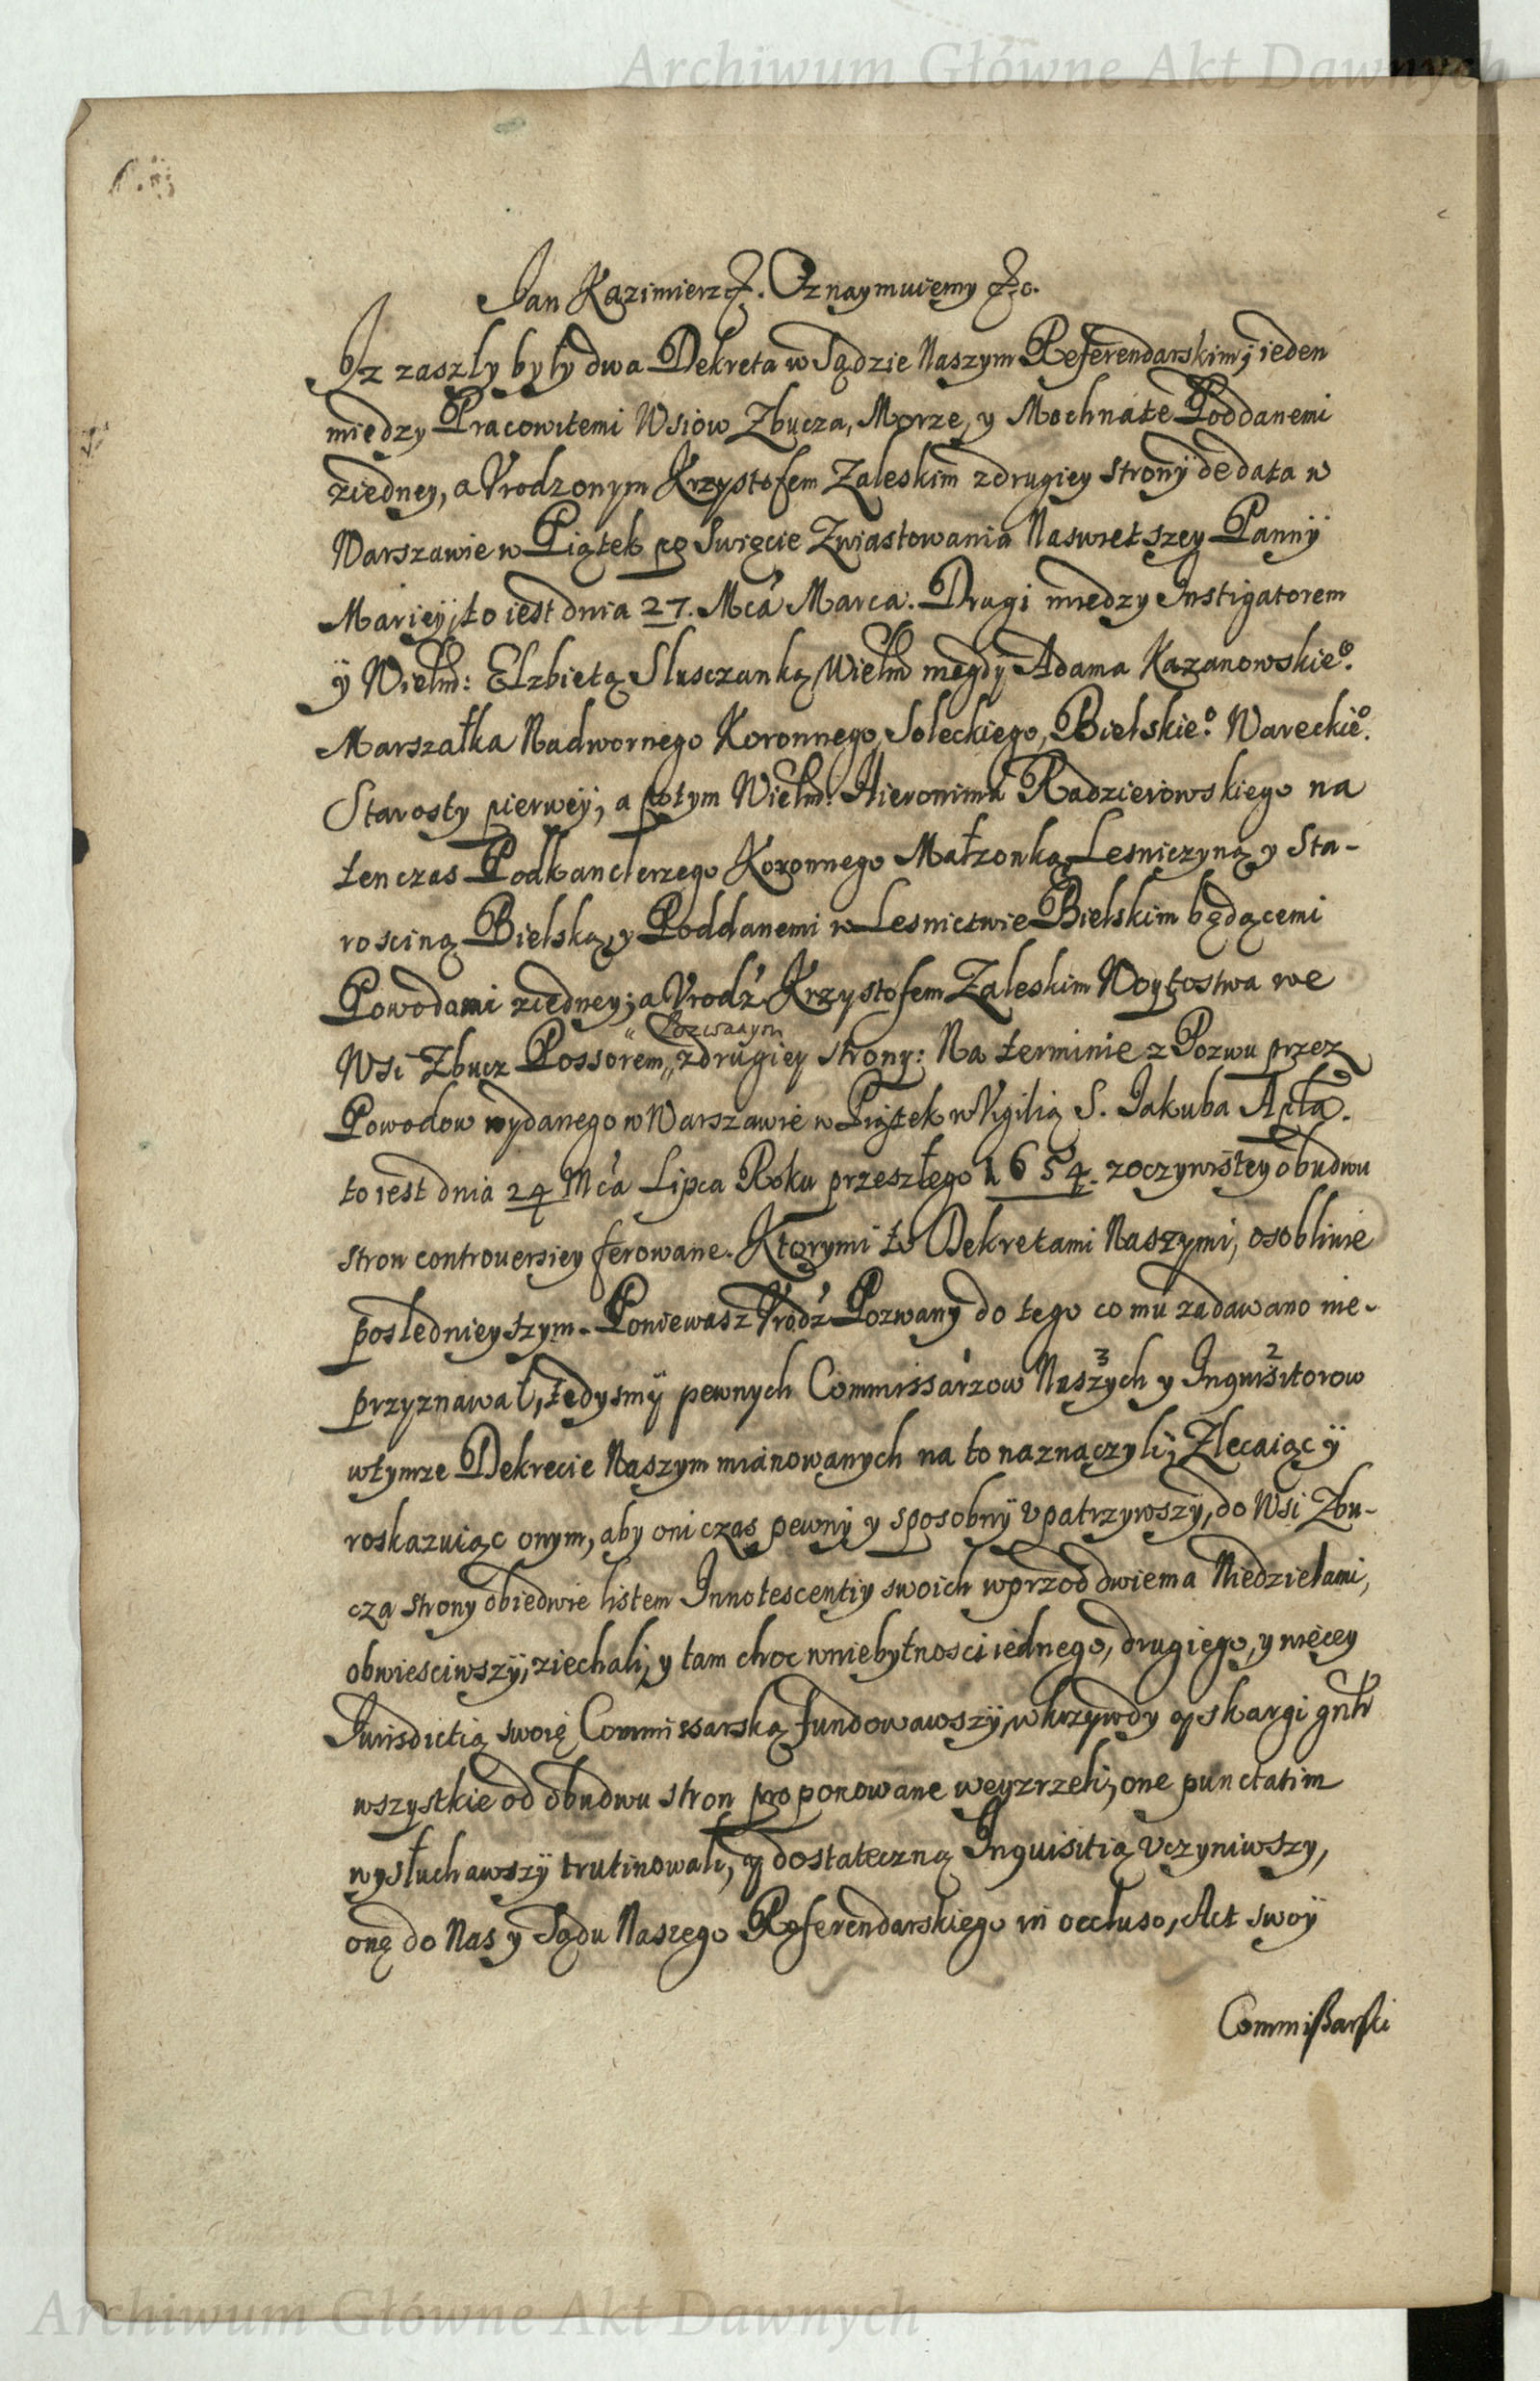 Archiwum Główne Akt Dawnych
Jan Kazimierz &. Oznaymuiemy &c.
Iz zaszły były dwa Dekreta w Sądzie Naszym Referendarskim; ieden
między Pracowitemi Wsiow Zbucza, Morze, y Mochnate Poddanemi
ziedney, a Vrodzonym Krzystofem Zaleskim zdrugiey strony de data w
Warszawie w Piątek po Swięcie Zwiastowania Naswietszey Panny
Mariey, to iest dnia 27. Mca Marca. Drugi między Instigatorem
y Wielm: Elzbietą Sluszczanką Wielm niegdy Adama Kazanowskieo.
Marszałka Nadwornego Koronnego, Soleckiego, Bielskieo. Wareckieo.
Starosty pierwey, a potym Wielm: Hieronima Radzieiowskiego na
ten czas Podkanclerzego Koronnego Małzonką Lesniczyną y Sta-
rosciną Bielską, y Poddanemi w Lesnictwie Bielskim będącemi
Powodami ziedney; a Vrodź. Krzystofem Zaleskim Woytostwa we
Pozwanym
Wsi Zbucz Possorem, zdrugiey strony: Na terminie z Pozwu przez
Powodow wydanego w Warszawie w Piątek w Vigilią S. Jakuba Apła.
to iest dnia 24 Mca Lipca Roku przeszłego 1654. zoczywistey obudwu
stron controuersiey ferowane. Ktorymi to Dekretami Naszymi, osobliwie
posledniejszym. Poniewasz Vrodź Pozwany do tego co mu zadawano nie-
przyznawał, tedysmy pewnych Commissarzow Naszych 3 y Inquisitorow 2
wtymze Dekrecie Naszym mianowanych na to naznaczyli, Zlecaiąc y
roskazuiąc onym, aby oni czas pewny y sposobny vpatrzywszy, do Wsi Zbu-
cza strony obiedwie listem Innotescentiy swoich wprzod dwiema Niedzielami,
obwiesciwszy, ziechali, y tam choc wniebytnosci iednego, drugiego, y więcey
Iurisdictią swoię Commissarską fundowawszy, w krzywdy y skargi
wszystkie od obudwu stron proponowane weyzrzeli, one punctatim
wysłuchawszy trutinowali, y dostateczną Inquisitią vczyniwszy,
onę do Nas y Sądu Naszego Referendarskiego in occluso, Act swoy
Commißarski
Archiwum Główne Akt Dawnych